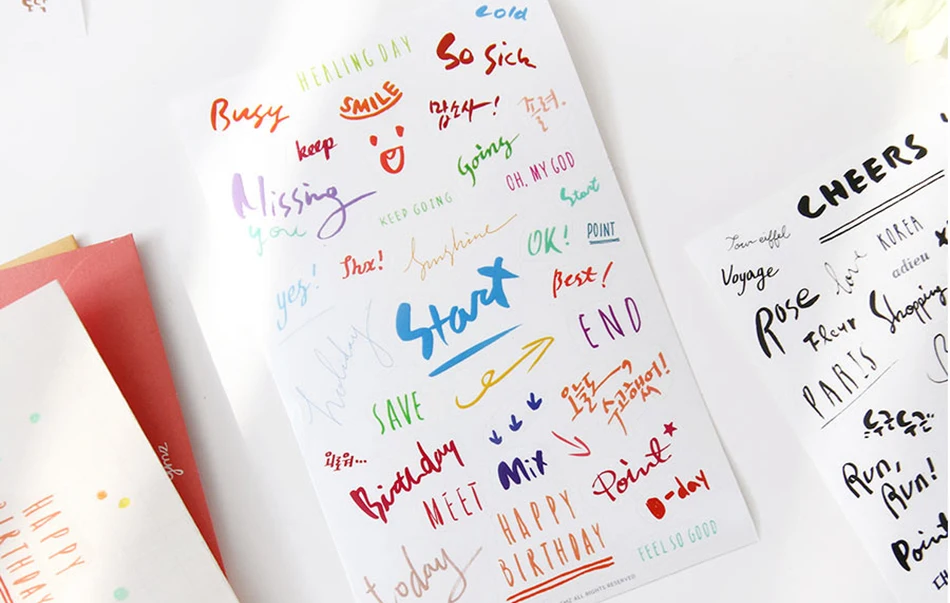 cold
HEALING DAY
So Sick
Busy
SMILE
맙소사!
졸려.
keep
Going
OH, MY GOD
Missing
you
KEEP GOING
Start
yes!
Thx!
Sunshine
OK!
POINT
Best!
Start
holiday
END
SAVE
오늘도,
수고했어!
외로워...
Birthday
Mix
Point
MEET
D-day
HAPPY
BIRTHDAY
FEEL SO GOOD
today
ALL RIGHTS RESERVED
HAPPY
BIRTHDAY
CHEERS
Tour eiffel
Voyage
love
KOREA
adieu
Rose
Fleur
Shopping
PARIS
두근두근
Run,
Run!
Point